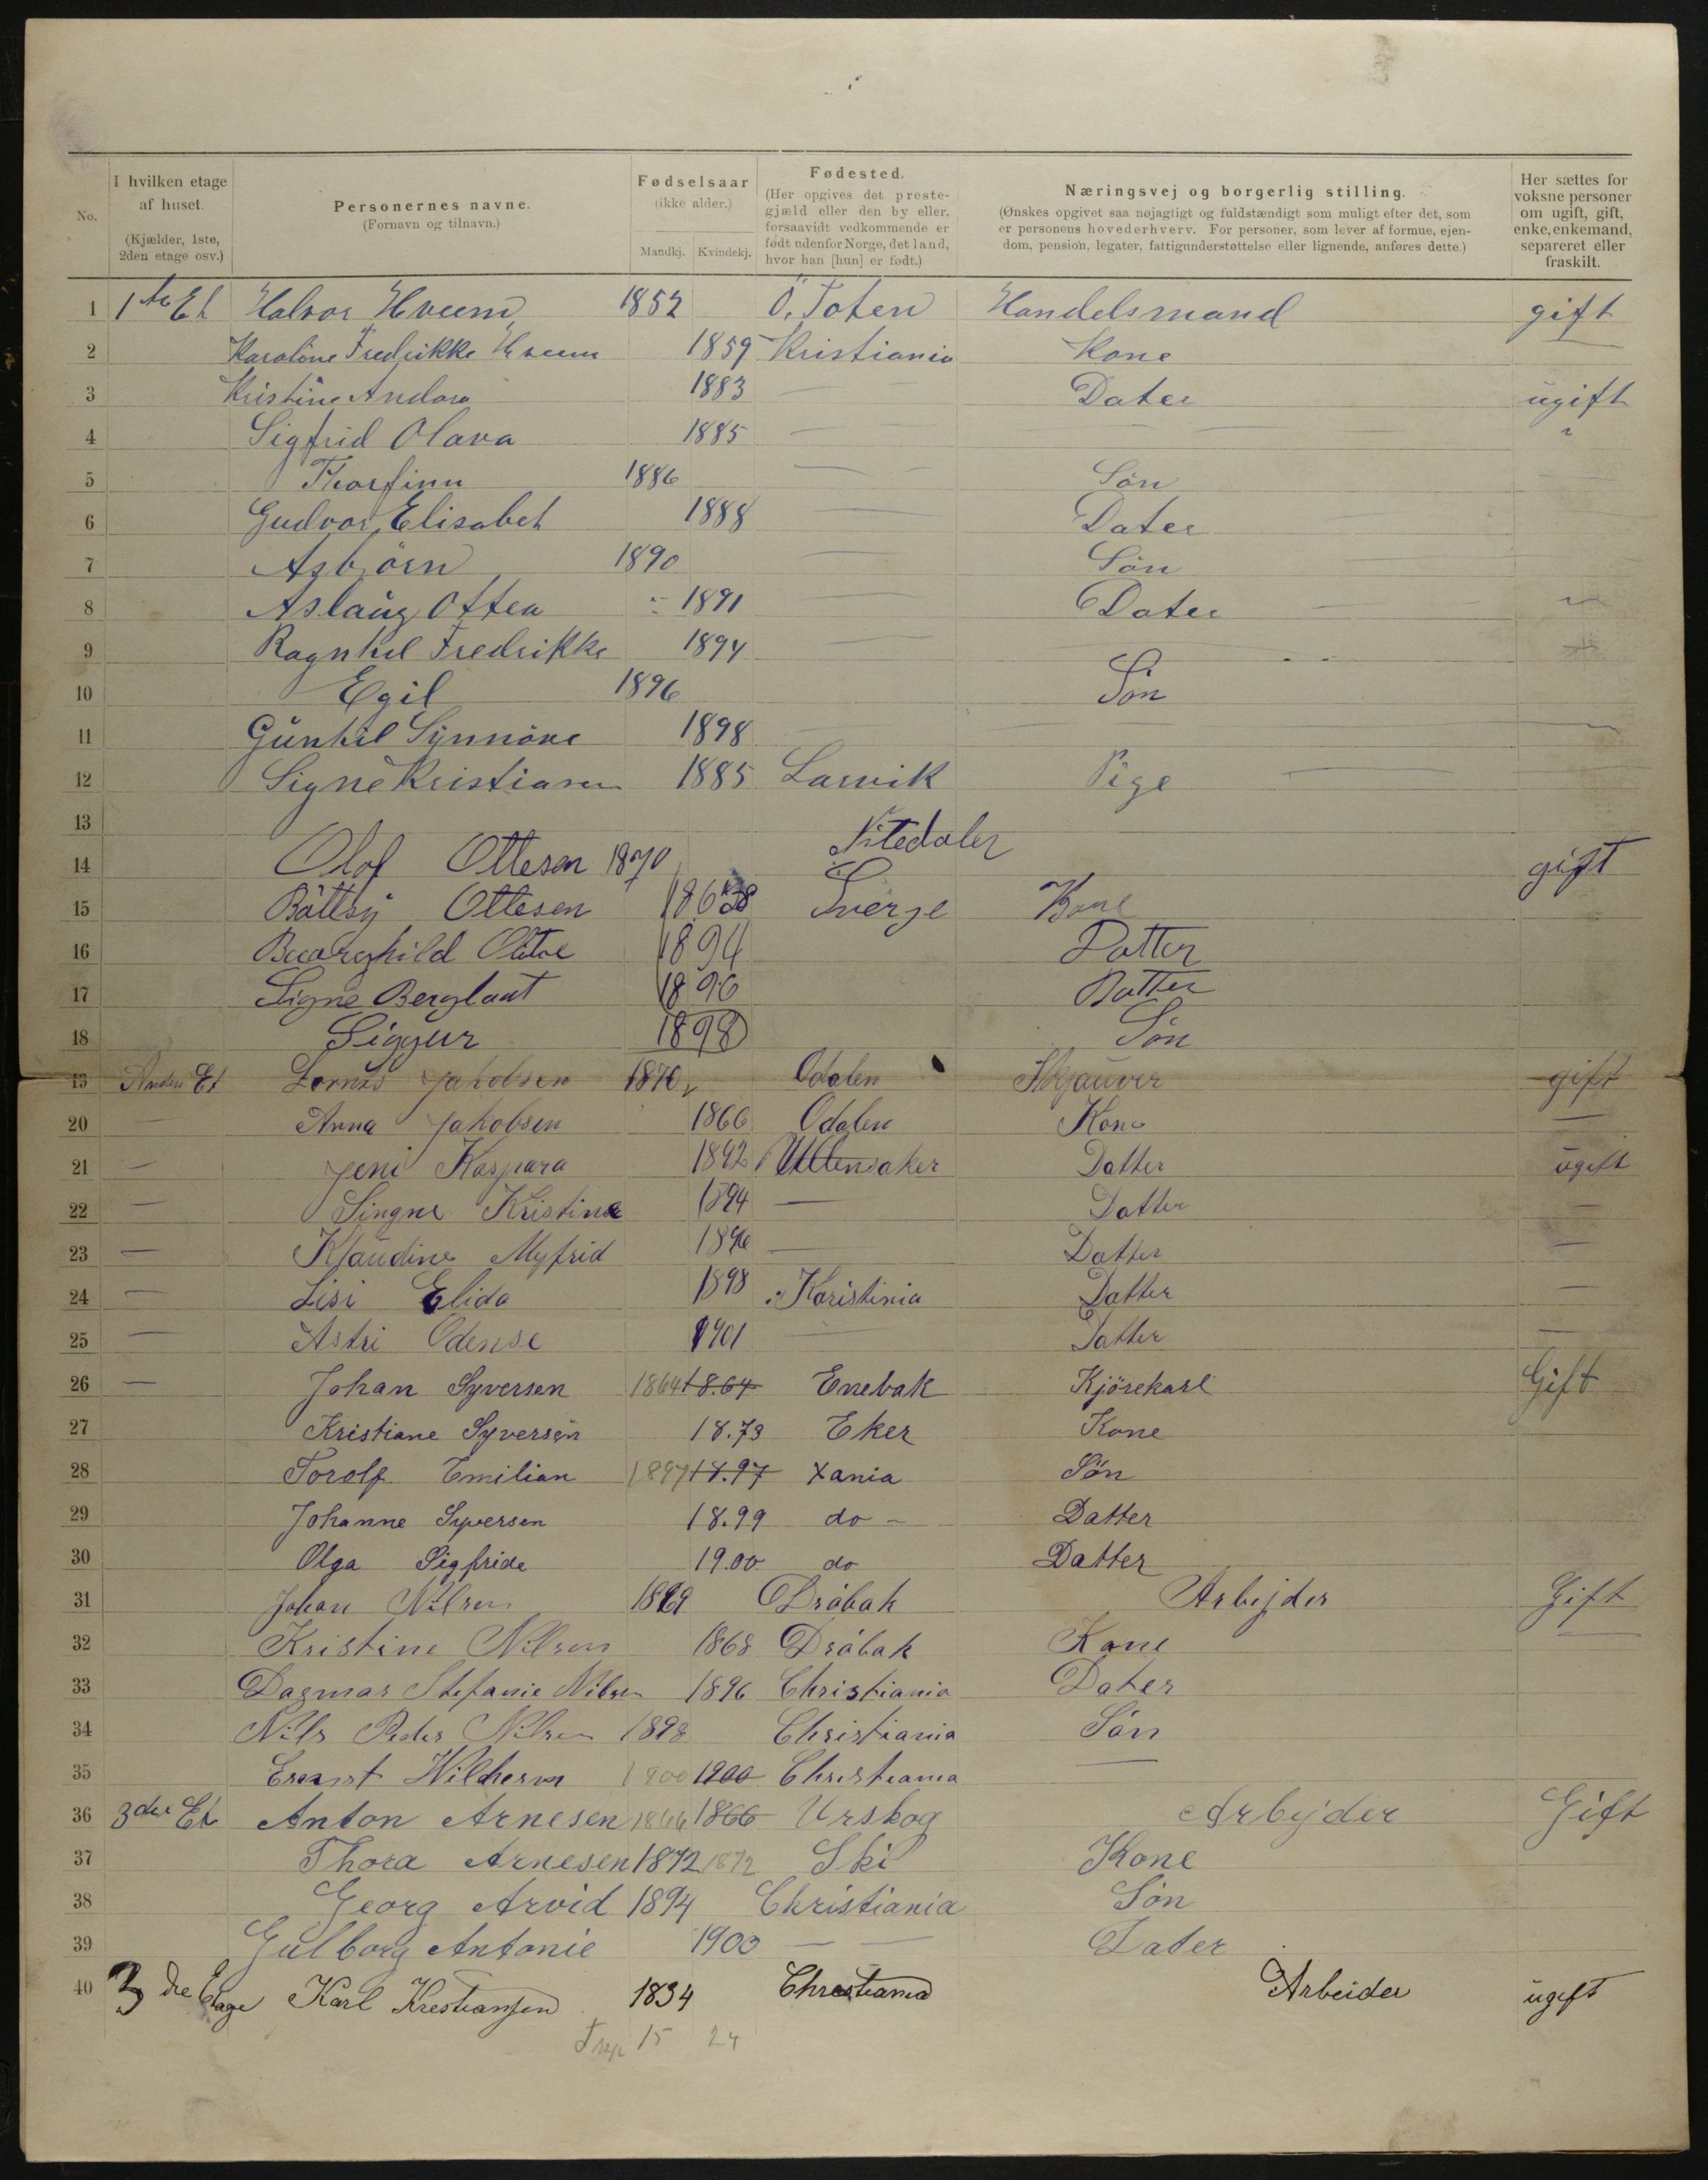 No.
I hvilken etage af huset. (Kjælder, 1ste, 2den etage osv.)
Personernes navne. (Fornavn og tilnavn.)
Fødselsaar (ikke alder.) Mandkj. Kvindekj.
Fødested. (Her opgives det prestegjæld eller den by eller, forsaavidt vedkommende er født udenfor Norge, det land, hvor han [hun] er født.)
Næringsvej og borgerlig stilling. (Ønskes opgivet saa nøjagtigt og fuldstændigt som muligt efter det, som er personens hovederhverv. For personer, som lever af formue, ejendom, pension, legater, fattigunderstøttelse eller lignende, anføres dette.)
Her sættes for voksne personer om ugift, gift, enke, enkemand, separeret eller fraskilt.
1 1ste Et Halvor Hveem 1852 Ö. Toten Handelsmand gift
2 Karoline Fredrikke Hveem 1859 Kristiania Kone
3 Kristine Andora 1883 — — Dater ugift
4 Sigfrid Olava 1885 — — — "
5 Thorfinn 1886 — — Sön
6 Gudvor Elisabet 1888 — — Dater
7 Asbjörn 1890 — — Sön
8 Aslaug Ottea 1891 — — Dater — —
9 Ragnhil Fredrikke 1894 — —
10 Egil 1896 Sön
11 Gunhil Synnöve 1898 — — —
12 Signe Kristiansen 1885 Larvik Pige —
13
14 Olof Ottesen 1870 Nitedaler gift
15 Bättsy Ottesen 1868 Sverge Kone
16 1894 Datter
17 Signe Berglaut 1896 Datter
18 Siggur 1898 Sön
19 Anden Et Jakobsen 1870 Odalen Skjauver gift
20 — Anna Jakobsen 1866 Odalen Kone —
21 — Jeni Kaspara 1892 Ullensaker Datter ugift
22 — Singne Kristine 1894 — Datter —
23 — Klaudine Myfrid 1896 — Datter —
24 — Lisi Elida 1898 Karistinia Datter —
25 — Astri Odense 1901 — Datter —
26 — Johan Syversen 1864 18.64 Enebak Kjörekarl Gift
27 Kristiane Syversen 18.73 Eker Kone
28 Torolf Emilian 1897 18.97 Xania Sön
29 Johanne Syversen 18.99 do - Datter
30 Olga Sigfride 19.00 do Datter
31 Johan Nilsen 1869 Dröbak Arbejder Gift
32 Kristine Nilsen 1868 Dröbak Kone
33 Dagmar Stefanie Nilsen 1896 Christiania Dater
34 Nils Peder Nilsen 1898 Christiania Sön
35 Ernst Wilherm 1900 1900 Christiania —
36 3die Et Anton Arnesen 1866 1866 Urskog Arbejder Gift
37 Thora Arnesen 1872 1872 Ski Kone
38 Georg Arvid 1894 Christiania Sön
39 Gulborg Antonie 1900 — — Dater
40 3die Etage Karl Krestiansen 1834 Chrestiania Arbeider ugift
15 24